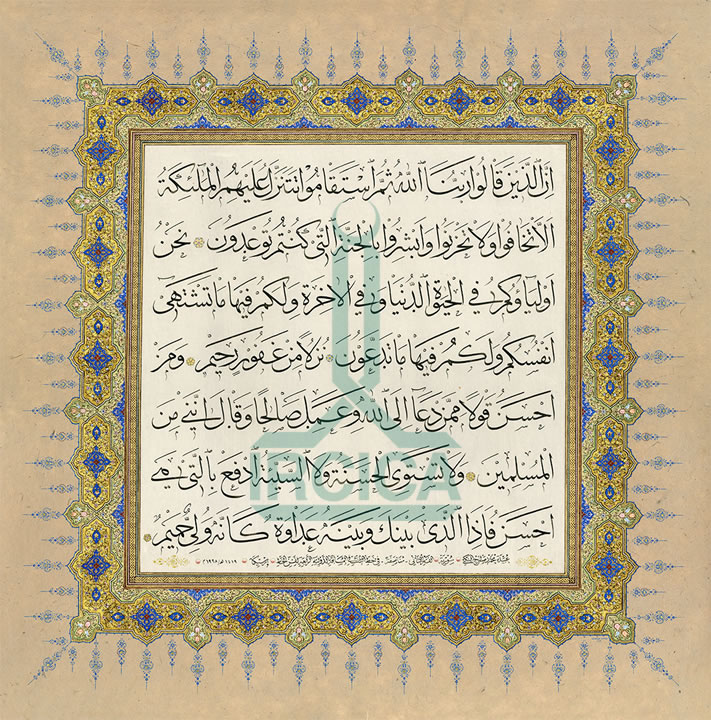 ان الذين قالوا ربنا الله ثم استقاموا تتنزل عليهم الملئكة
الا تخافوا ولا تحزنوا وابشروا بالجنة التي كنتم توعدون نحن
اولياؤكم في الحيوة الدنيا وفي الاخرة ولكم فيها ما تشتهي
انفسكم ولكم فيها ما تدعون نزلا من غفور رحيم ومن
احسن قولا ممن دعا الى الله وعمل صالحا وقال انني من
المسلمين ولا تستوي الحسنة ولا السيئة ادفع بالتي هي
احسن فاذا الذي بينك وبينه عداوة كانه ولي حميم
١٤١٩
IRCICA